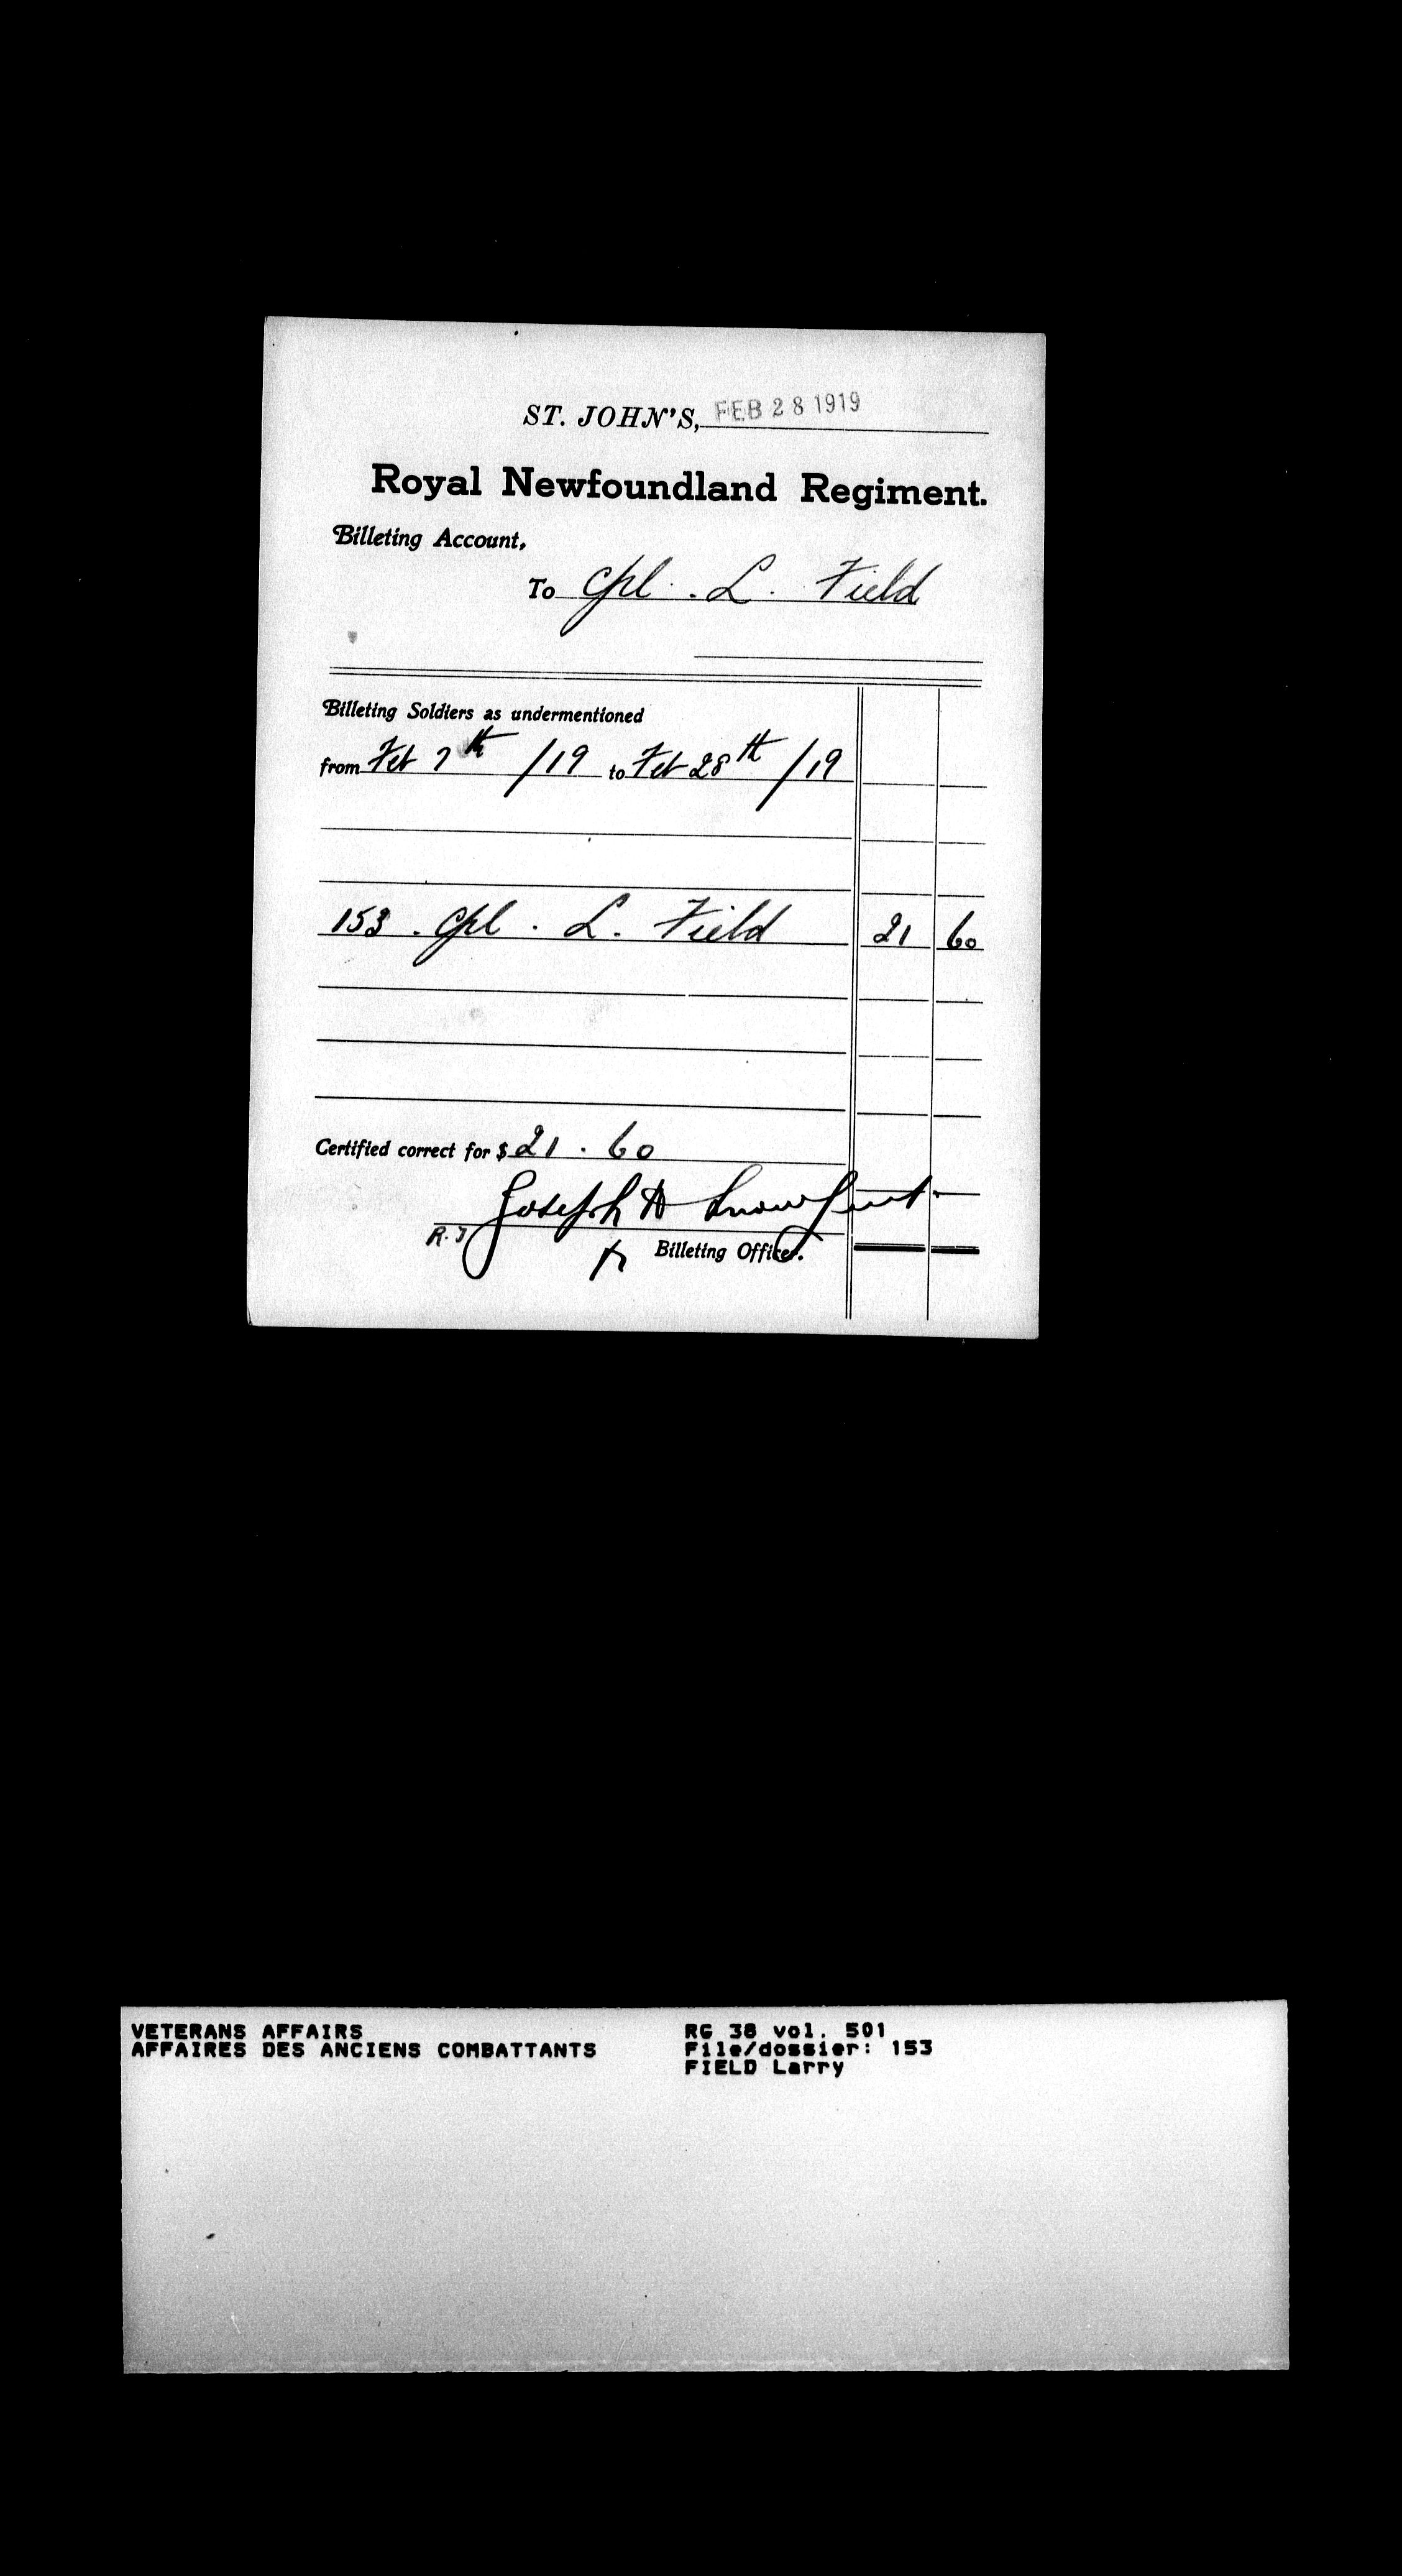 ST. JOHN'S, FEB 28 1919
Royal Newfoundland Regiment.
Billeting Account,
To Cpl. L. Field
Billeting Soldiers as undermentioned
from Feb 7th /19 to Feb 28th /19
153. Cpl. L. Field 21 60
Certified correct for $ 21.60
Joseph Snow Lieut.
Billeting Officer.
VETERANS AFFAIRS RG 38 vol. 501
AFFAIRES DES ANCIENS COMBATTANTS File/dossier: 153
FIELD Larry